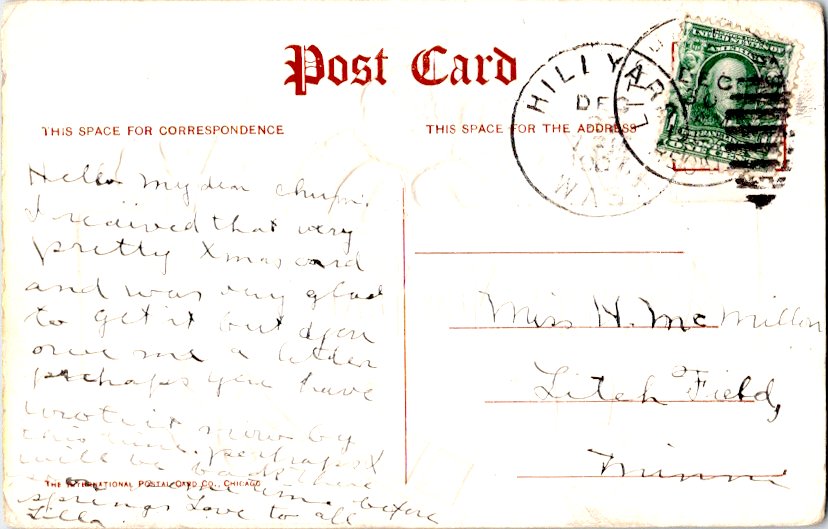 Post Card
THIS SPACE FOR CORRESPONDENCE
THIS SPACE FOR THE ADDRESS
HILLYARD
DEC
WASH
UNITED STATES OF
AMERICA
Hello my dear chum.
I recived that very
pretty Xmas card
and was very glad
to get it but you
owe me a letter
perhaps you have
wrote it now by
this time. perhaps I
will be back there
some time before
springs Love to all
Lilla.
Miss H. McMillon
Litch Field,
Minn
THE INTERNATIONAL POSTAL CARD CO., CHICAGO